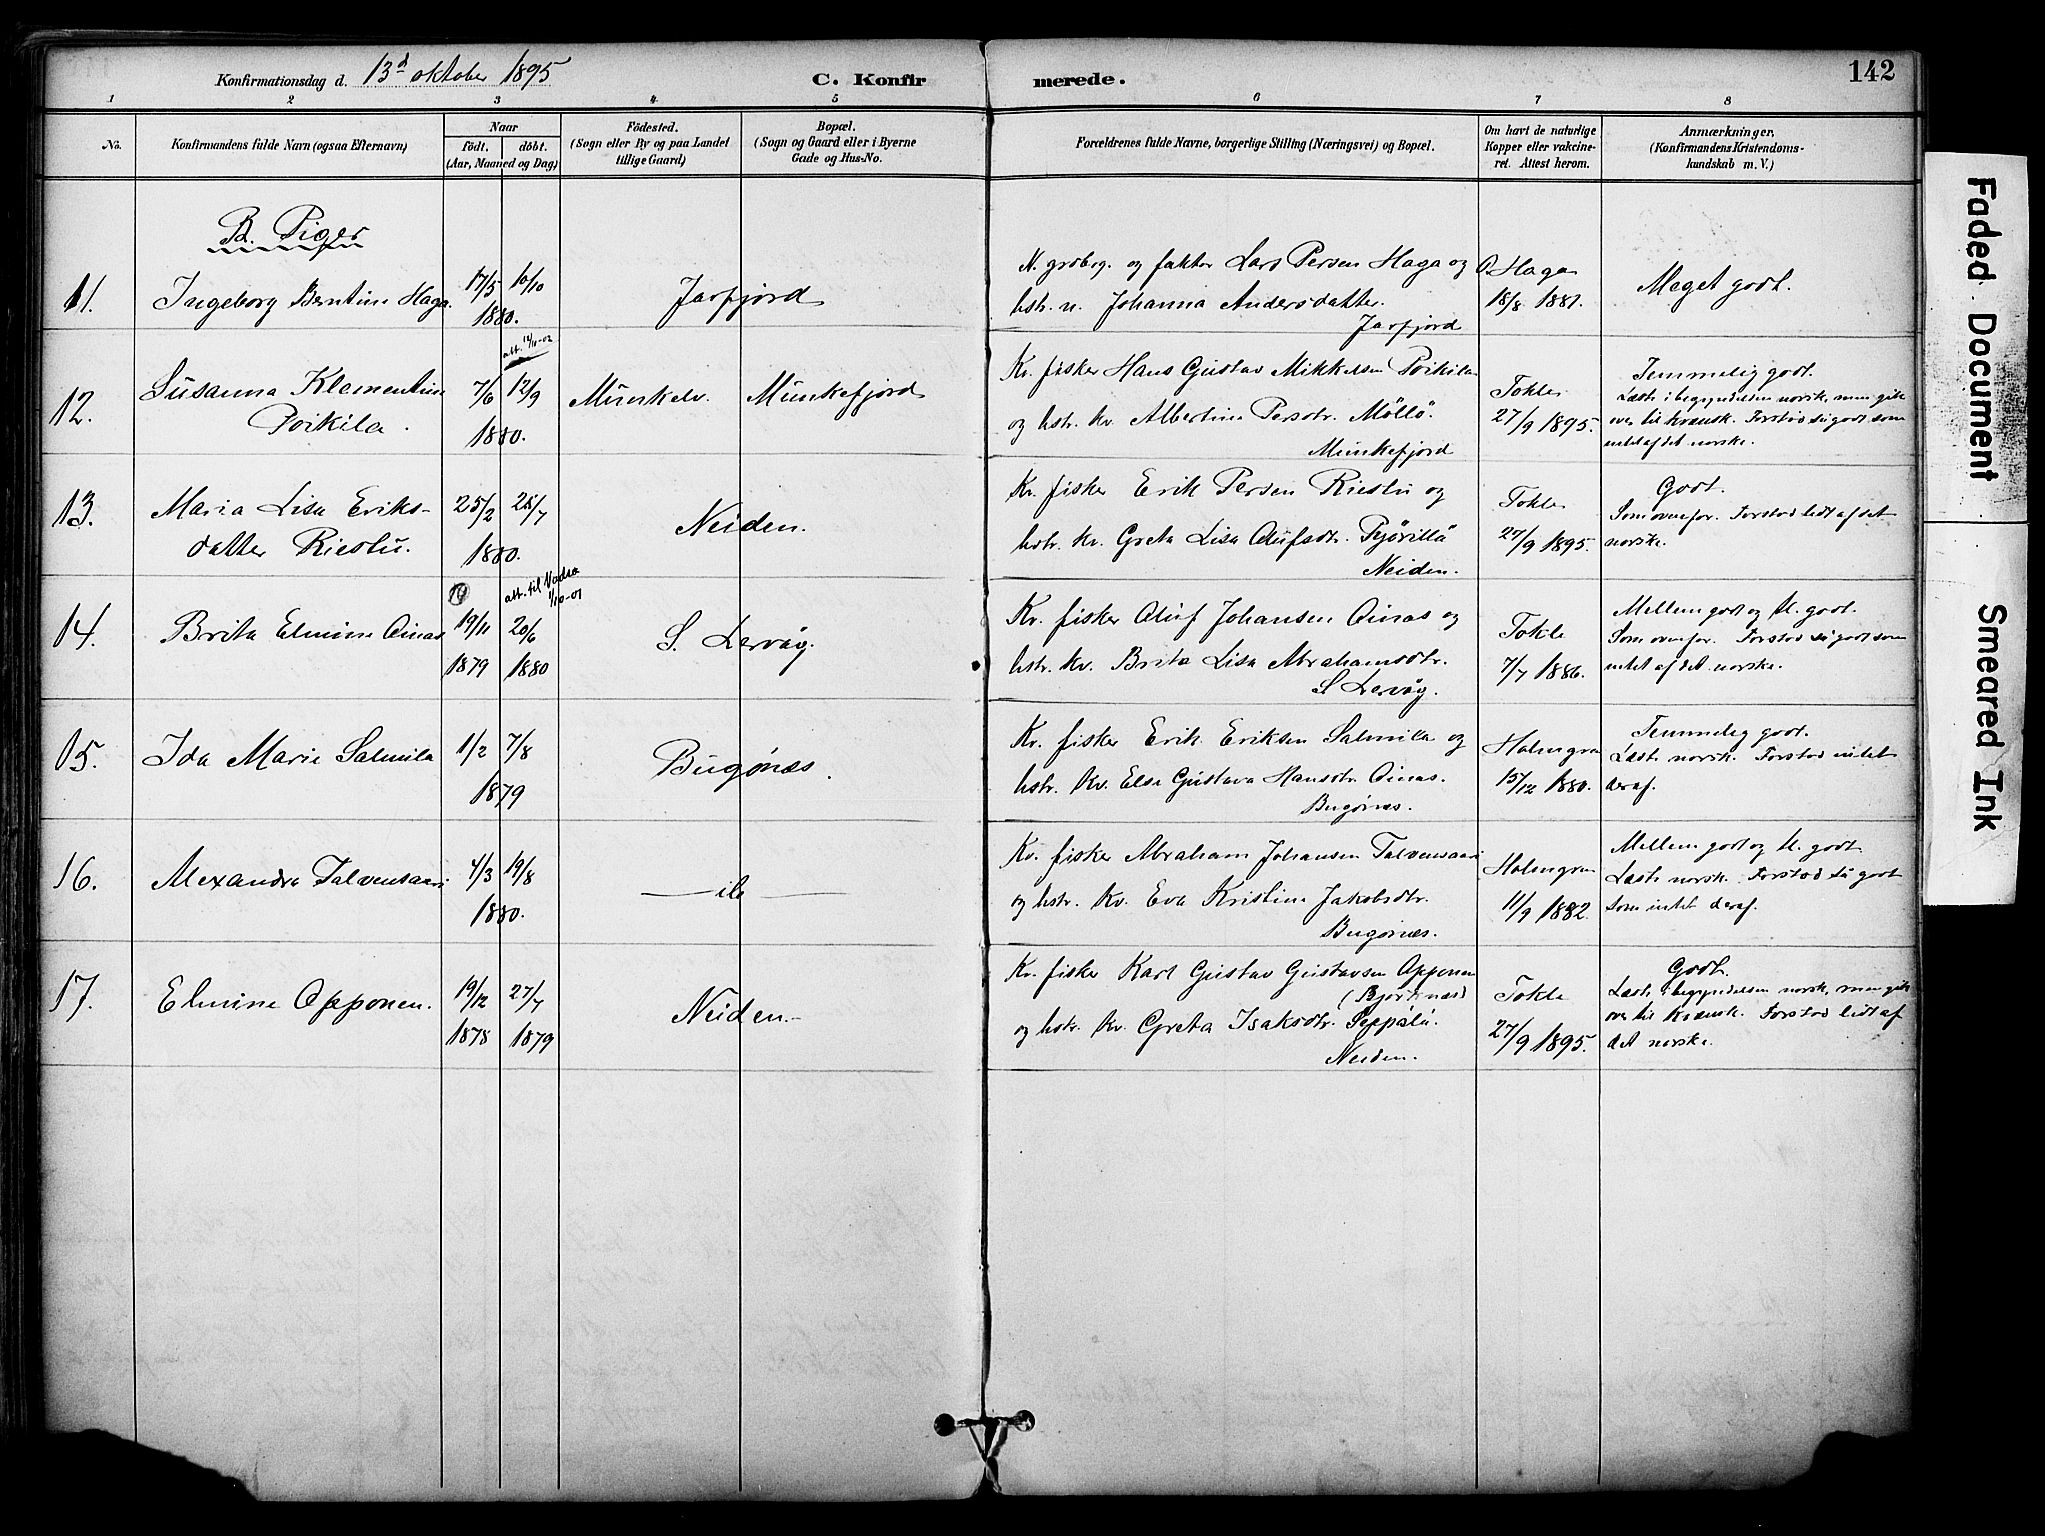 Konfirmationsdag d. 13d oktober 1895
C. Konfirmerede.
142
1 2 3 4 5 6 7 8
No.
Konfirmandens fulde Navn (ogsaa Efternavn)
Naar
födt. döbt.
(Aar, Maaned og Dag)
Födested.
(Sogn eller By og paa Landet
tillige Gaard)
Bopæl.
(Sogn og Gaard eller i Byerne
Gade og Hus-No.
Forældrenes fulde Navne, borgerlige Stilling (Næringsvei) og Bopæl.
Om havt de naturlige
Kopper eller vakcine-
ret. Attest herom.
Anmærkninger.
(Konfirmandens Kristendoms-
kundskab m. V.)
B. Piger
11.
Ingeborg Berntine Haga
17/5 10/10
1880.
Jarfjord
N. grdbrg. og faktor Lars Persen Haga og
hstr. n. Johanna Andersdatter.
Jarfjord
O Haga
18/8 1881.
Meget godt.
12.
Susanna Klementine
Poikila.
att.
7/6 12/9
1880.
Munkelv.
Munkefjord
Kv. fisker Hans Gustav Mikkelsen Poikila
og hstr. kv. Albertine Persdtr. Möllö.
Munkefjord
Tokle
27/9 1895.
Temmelig godt.
Læste i begyndelsen norsk, men gik
over til kvænsk. Forstod så godt som
intet af det norske.
13.
Maria Lisa Eriks-
datter Riestu.
25/2 25/7
1880.
Neiden.
Kv. fisker Erik Persen Riestu og
hstr. kv. Greta Lisa Olufsdtr. Pyörillö
Neiden.
Tokle
27/9 1895.
Godt.
Som ovenfor. Forstod lidt af det
norske.
14.
Brita Elmine Ainas
att. til Vadsø
1/10-01
19/11 20/6
1879 1880
S. Lervåg.
Kv. fisker Oluf Johansen Ainas og
hstr. kv. Brita Lisa Abrahamsdtr.
S Lervåg.
Tokle
7/7 1886.
Mellem godt og M. godt.
Som ovenfor. Forstod så godt som
intet af det norske.
15.
Ida Marie Salmila
1/2 7/8
1879
Bugönæs.
Kv. fisker Erik Eriksen Salmila og
hstr. kv. Else Gustava Hansdtr. Ainas.
Bugönæs.
Holmgren
15/12 1880.
Temmelig godt.
Læste norsk. Forstod intet
deraf.
16.
Alexandra Talvensaari
4/3 19/8
1880.
— ib —
Kv. fisker Abraham Johansen Talvensaari
og hstr. kv. Eva Kristine Jakobsdtr.
Bugönæs.
Holmgren
11/9 1882.
Mellem godt og M. godt
Læste norsk. Forstod så godt
som intet deraf.
17.
Elmine Opponen.
19/12 27/7
1878 1879
Neiden.
Kv. fisker Karl Gustav Gustavsen Opponen
(Björknæs)
og hstr. kv. Greta Isaksdtr. Seppälä.
Neiden.
Tokle
27/9 1895.
Godt.
Læste i begyndelsen norsk, men gik
over til kvænsk. Forstod lidt af
det norske.
Faded Document
Smeared Ink